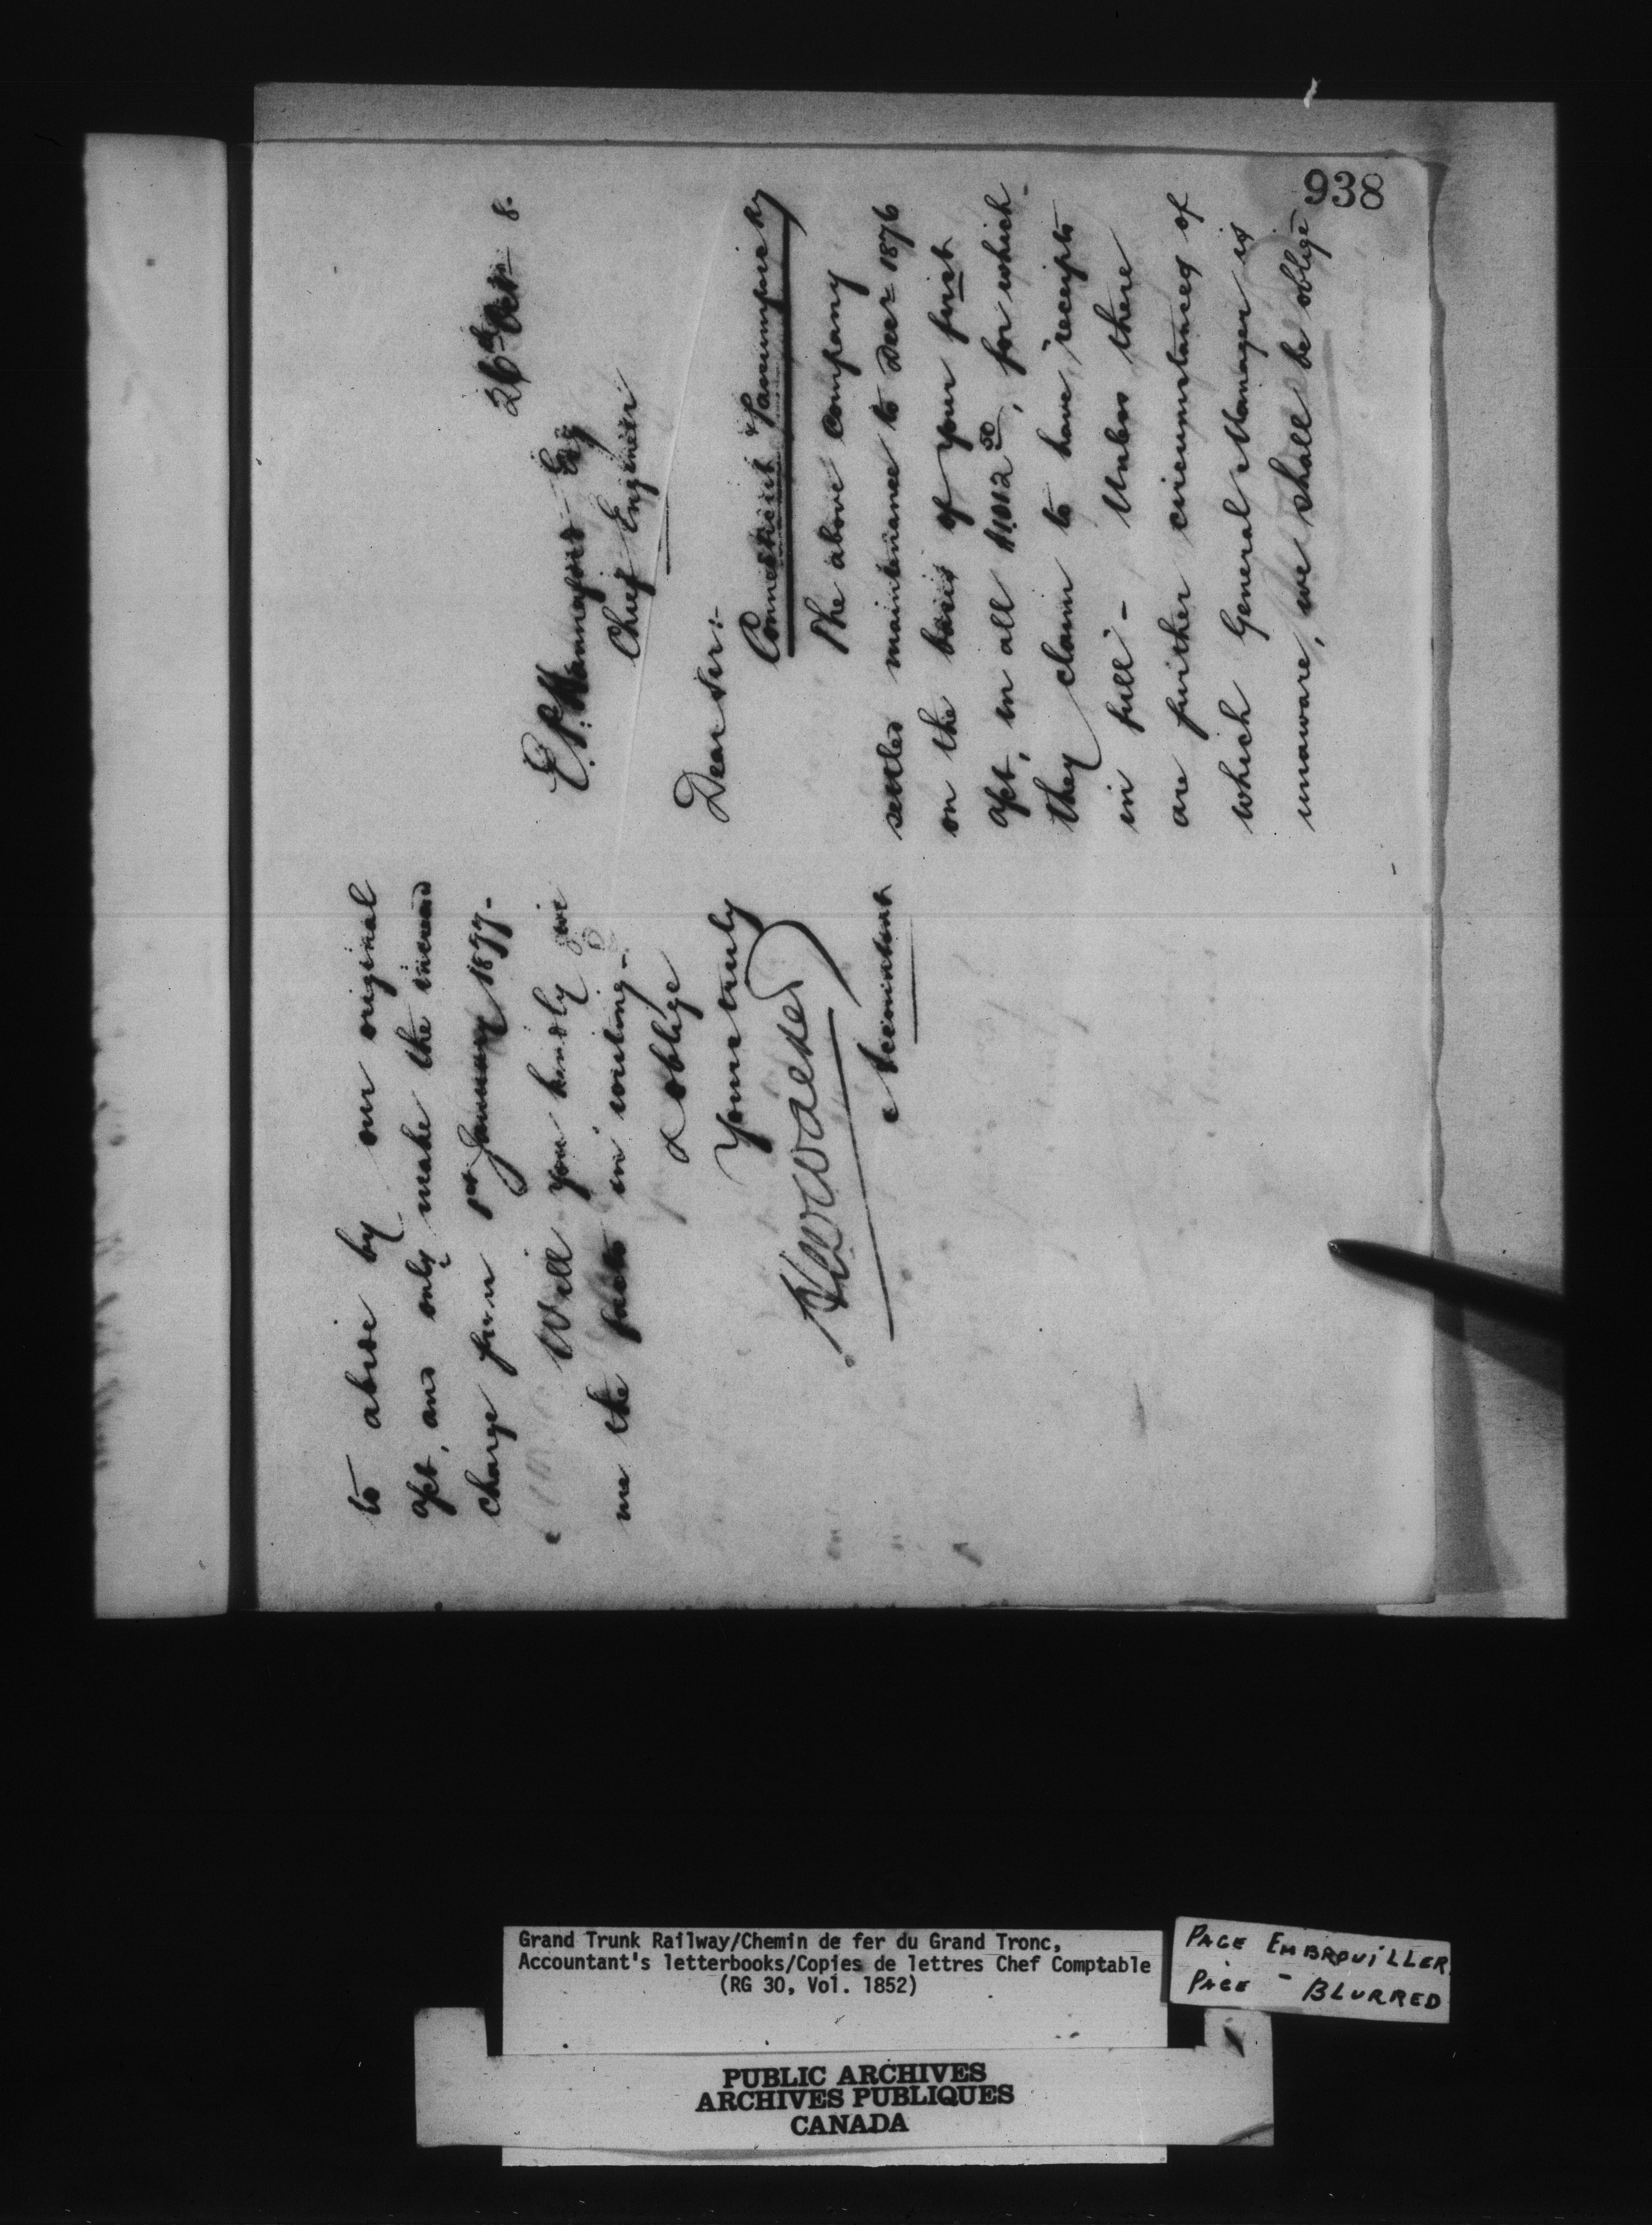 938
26th Oct 8.
E. P. Hannaford Esq
Chief Engineer
Dear Sir:-
Connecticut & Passumpsic Ry
The above Company
settled maintenance to Decr 1876
on the basis of your first
apt, in all $1012.50, for which
they claim to have receipts
in full - Unless there
are further circumstances of
which General Manager is
unaware, we shall be oblige
to abide by our original
apt, and only make the increased
charge from 1st January 1877-
Will you kindly give
me the facts in writing-
& oblige
Yours truly
Accountant
Grand Trunk Railway/Chemin de fer du Grand Tronc,
Accountant's letterbooks/Copies de lettres Chef Comptable
(RG 30, Vol. 1852)
PAGE EMBROUILLER
PAGE - BLURRED
PUBLIC ARCHIVES
ARCHIVES PUBLIQUES
CANADA